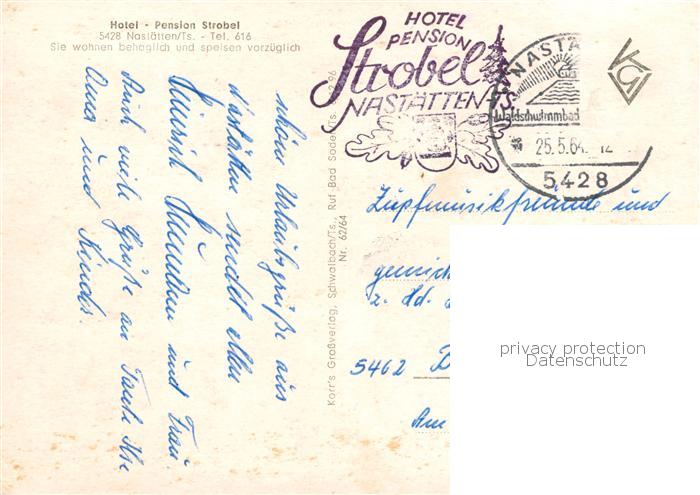 Hotel - Pension Strobel
5428 Nastätten/Ts. - Tel. 616
Sie wohnen behaglich und speisen vorzüglich
HOTEL
PENSION
Strobel
NASTÄTTEN-TS
NASTÄ
Waldschwimmbad
25.5.64. 12
5428
schöne Urlaubsgrüße aus
Nastätten sendet allen
und Frau.
Auch viele Grüße an Tante
Anna und Kinder.
Korr's Großverlag, Schwalbach/Ts., Ruf Bad Soden/Ts.
Nr. 62/64
Zupfmusikfreunde und
gemisch
z. Hd.
5462
Am
privacy protection
Datenschutz